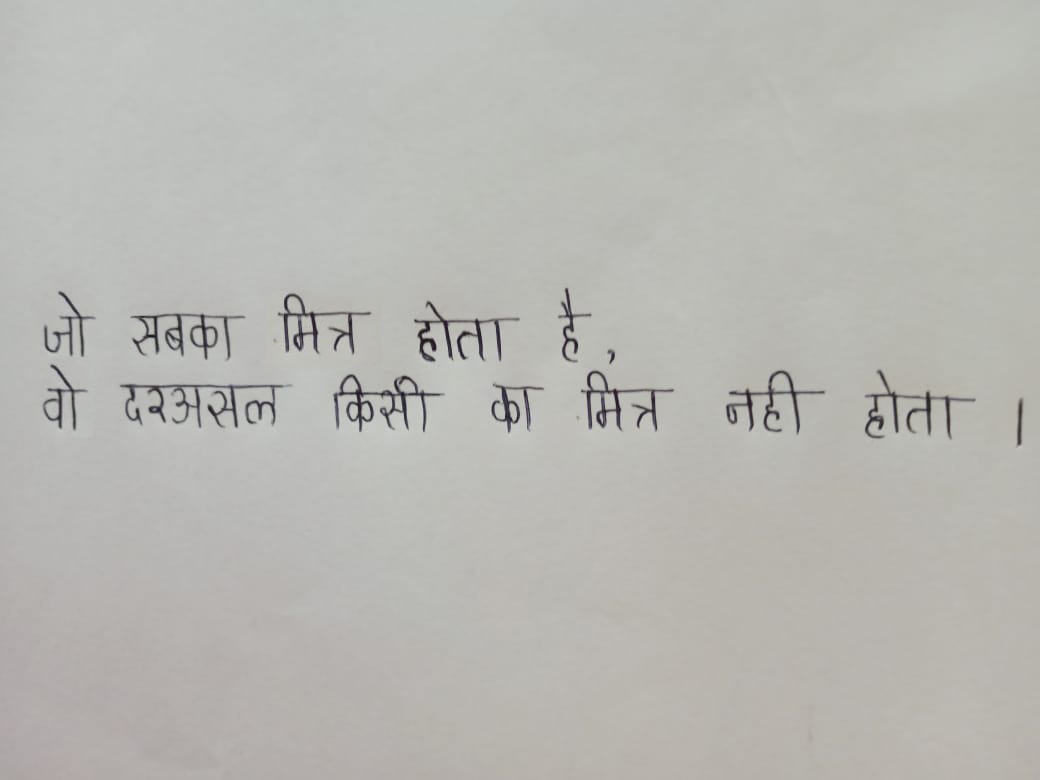 जो सबका मित्र होता है,
वो दरअसल किसी का मित्र नही होता ।